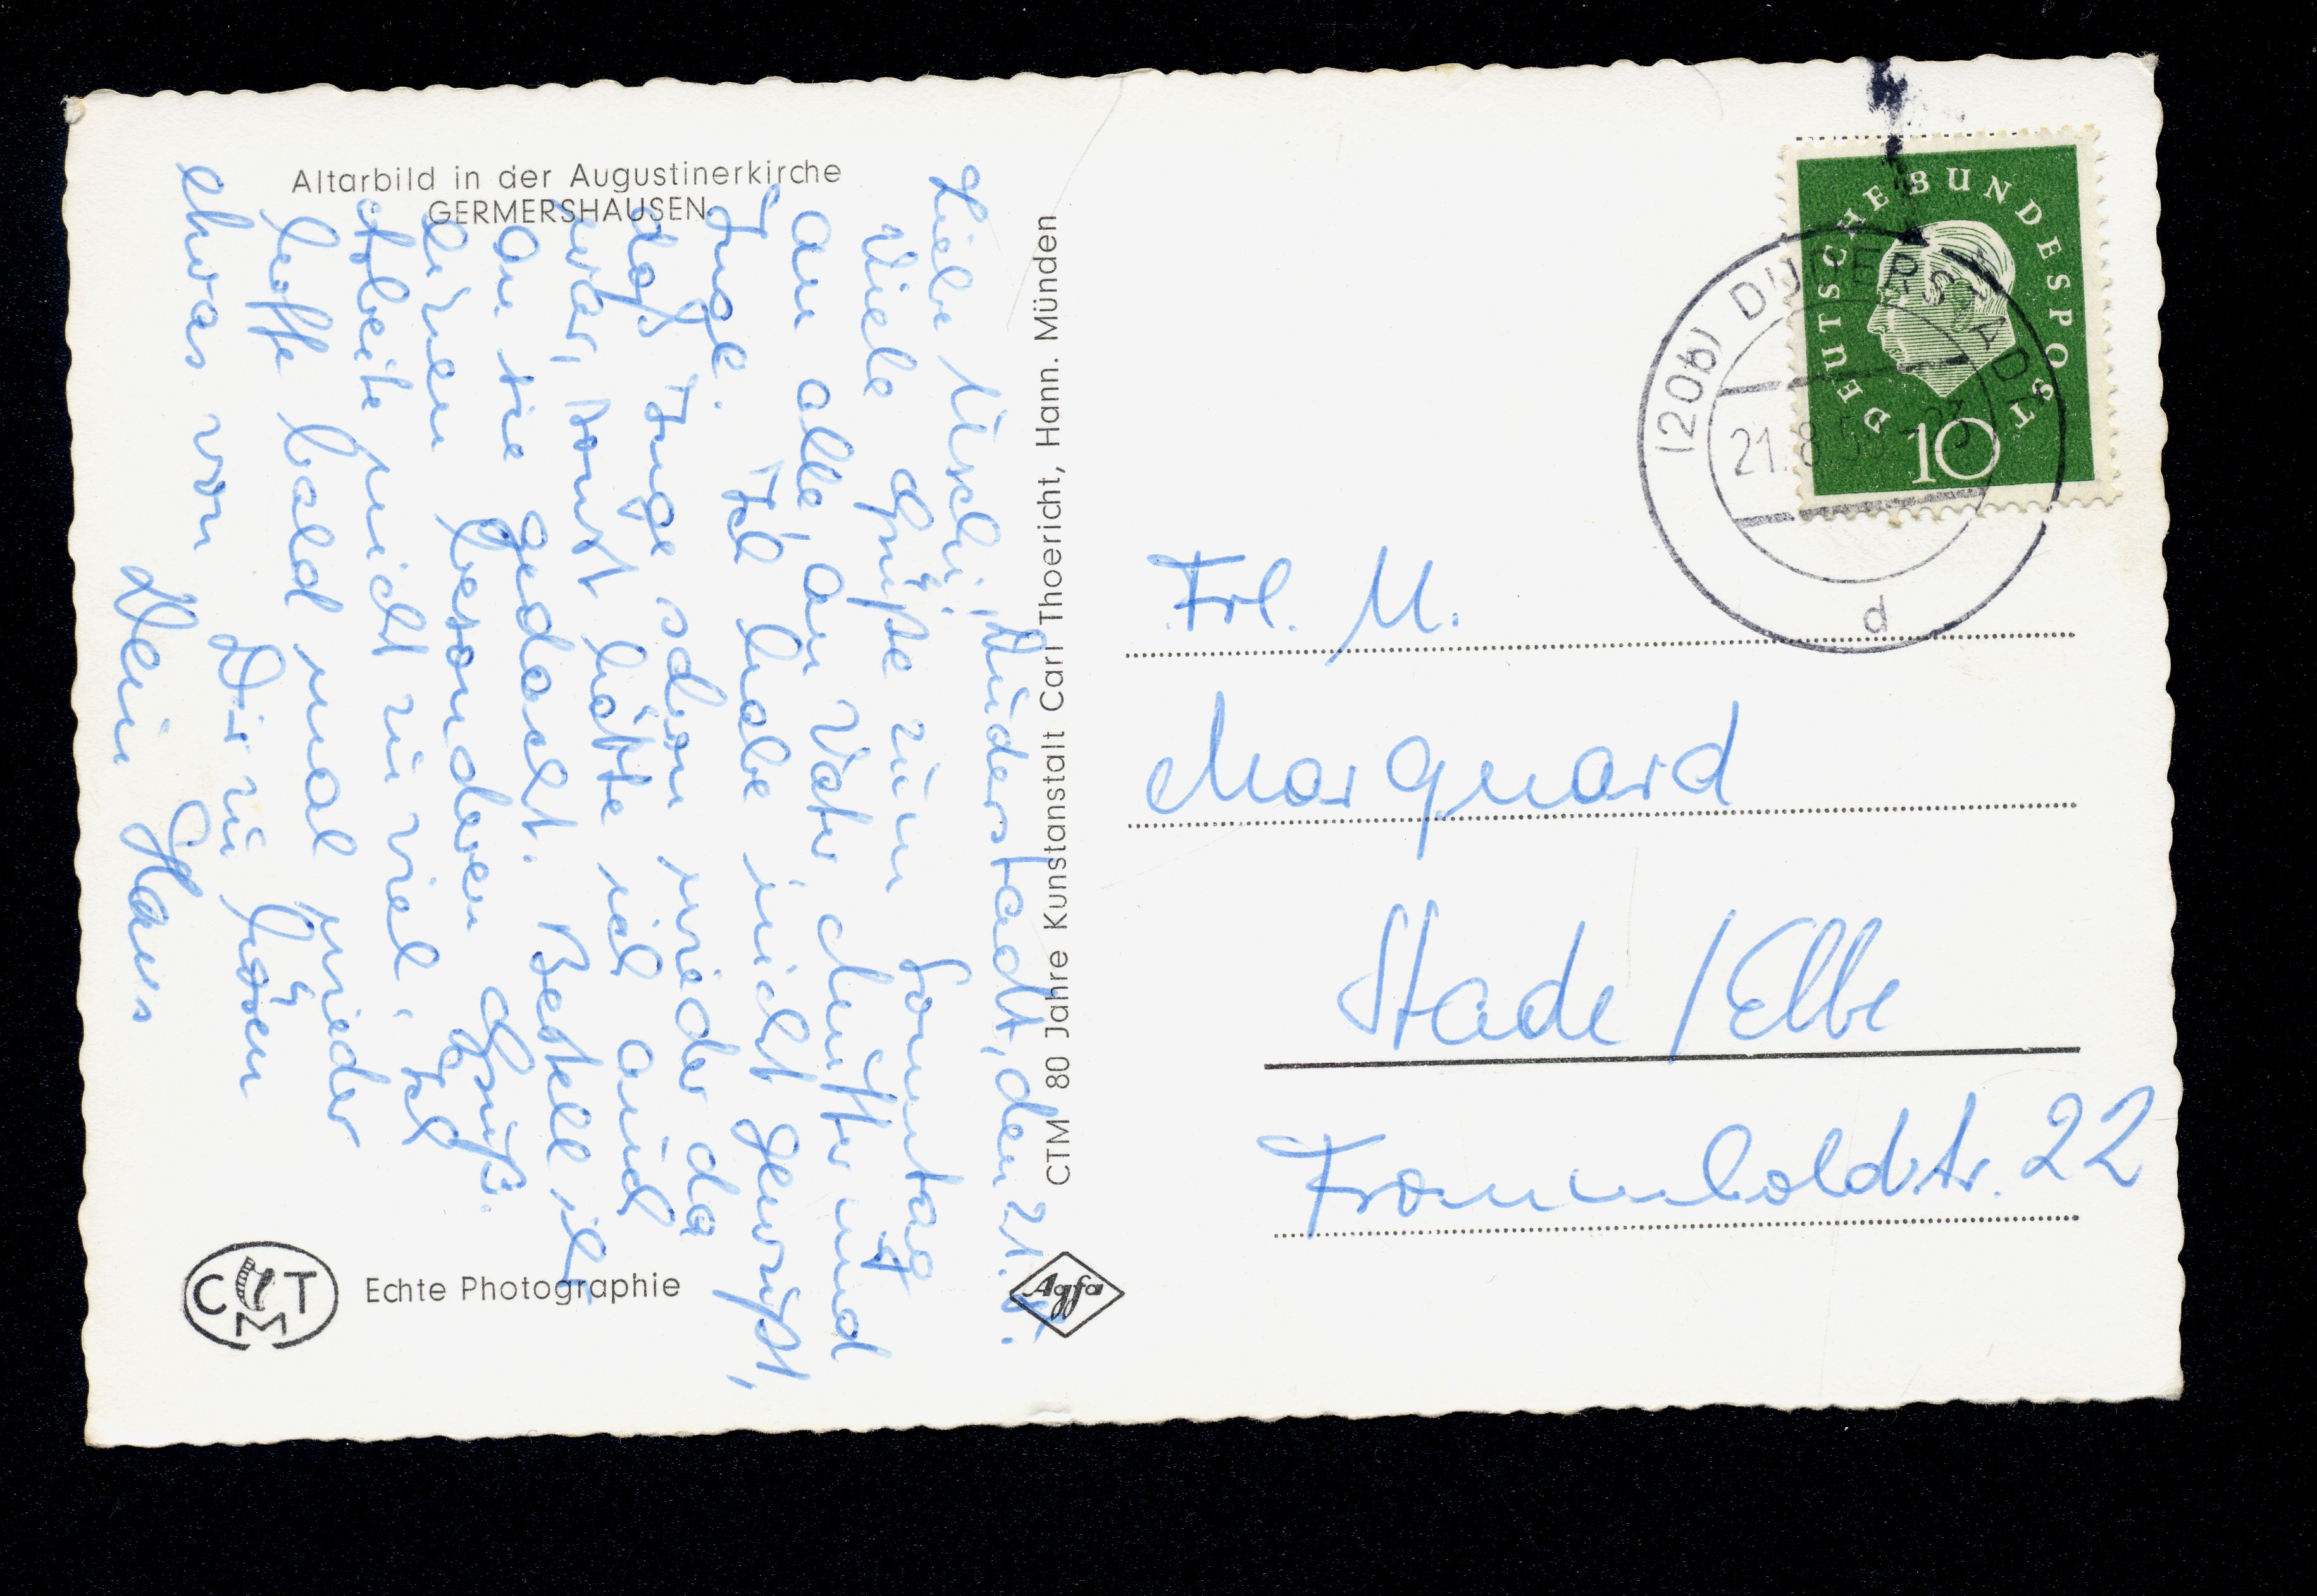 Altarbild in der Augustinerkirche
GERMERSHAUSEN
Duderstadt, den 21. 8.
Liebe Uschi!
Viele Grüße zum Sonntag
an alle, an Vater Mutter und
Inge. Ich habe nicht gewußt,
daß Inge schon wieder da
war, sonst hätte ich auch
an sie gedacht. Bestell ihr
einen besonderen Gruß.
Arbeite nicht zu viel! Ich
hoffe bald mal wieder
etwas von Dir zu hören
Dein Hans
CTM 80 Jahre Kunstanstalt Carl Thoericht, Hann. Münden
CMT
Echte Photographie
Agfa
DEUTSCHE BUNDESPOST
10
(20b) DUDERSTADT
21.8.59
d
Frl. U.
Marquard
Stade / Elbe
Frommholdstr. 22